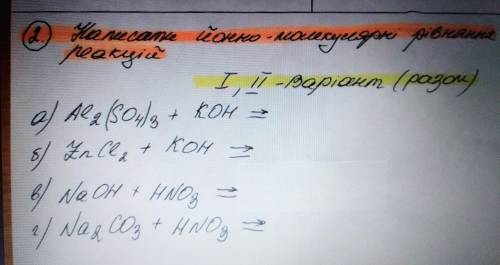 2. Написати йонно-молекулярні рівняння
реакцій
I, II - Варіант (разом)
а) Al₂(SO₄)₃ + KOH =
б) ZnCl₂ + KOH =
в) NaOH + HNO₃ =
г) Na₂CO₃ + HNO₃ =